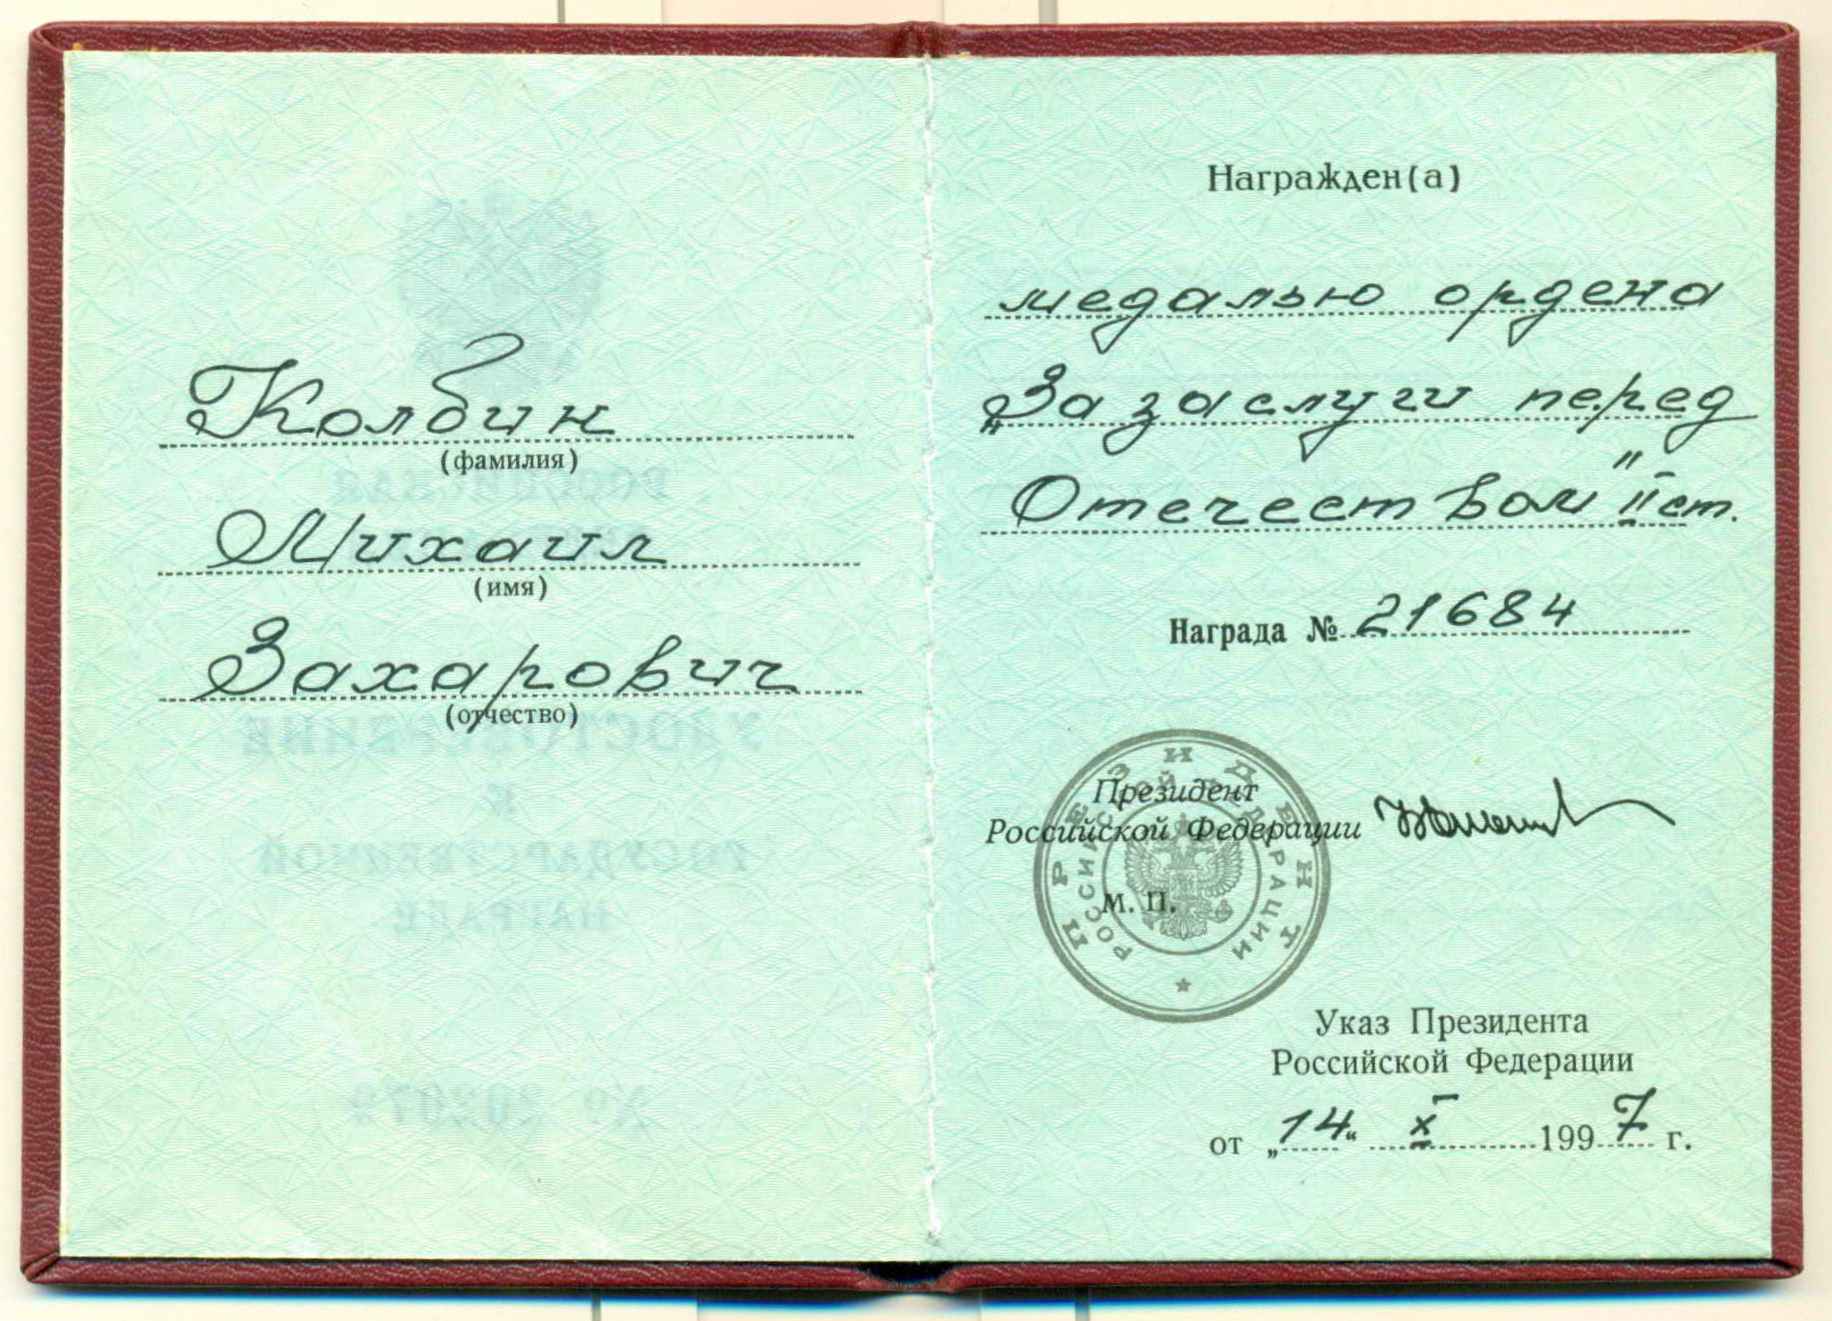 Колбин
(фамилия)
Михаил
(имя)
Захарович
(отчество)
Награжден(а)
медалью ордена
„За заслуги перед
Отечеством" II ст.
Награда № 21684
Президент
Российской Федерации
М. П.
ПРЕЗИДЕНТ
РОССИЙСКОЙ ФЕДЕРАЦИИ
Указ Президента
Российской Федерации
от „14“ X 1997 г.